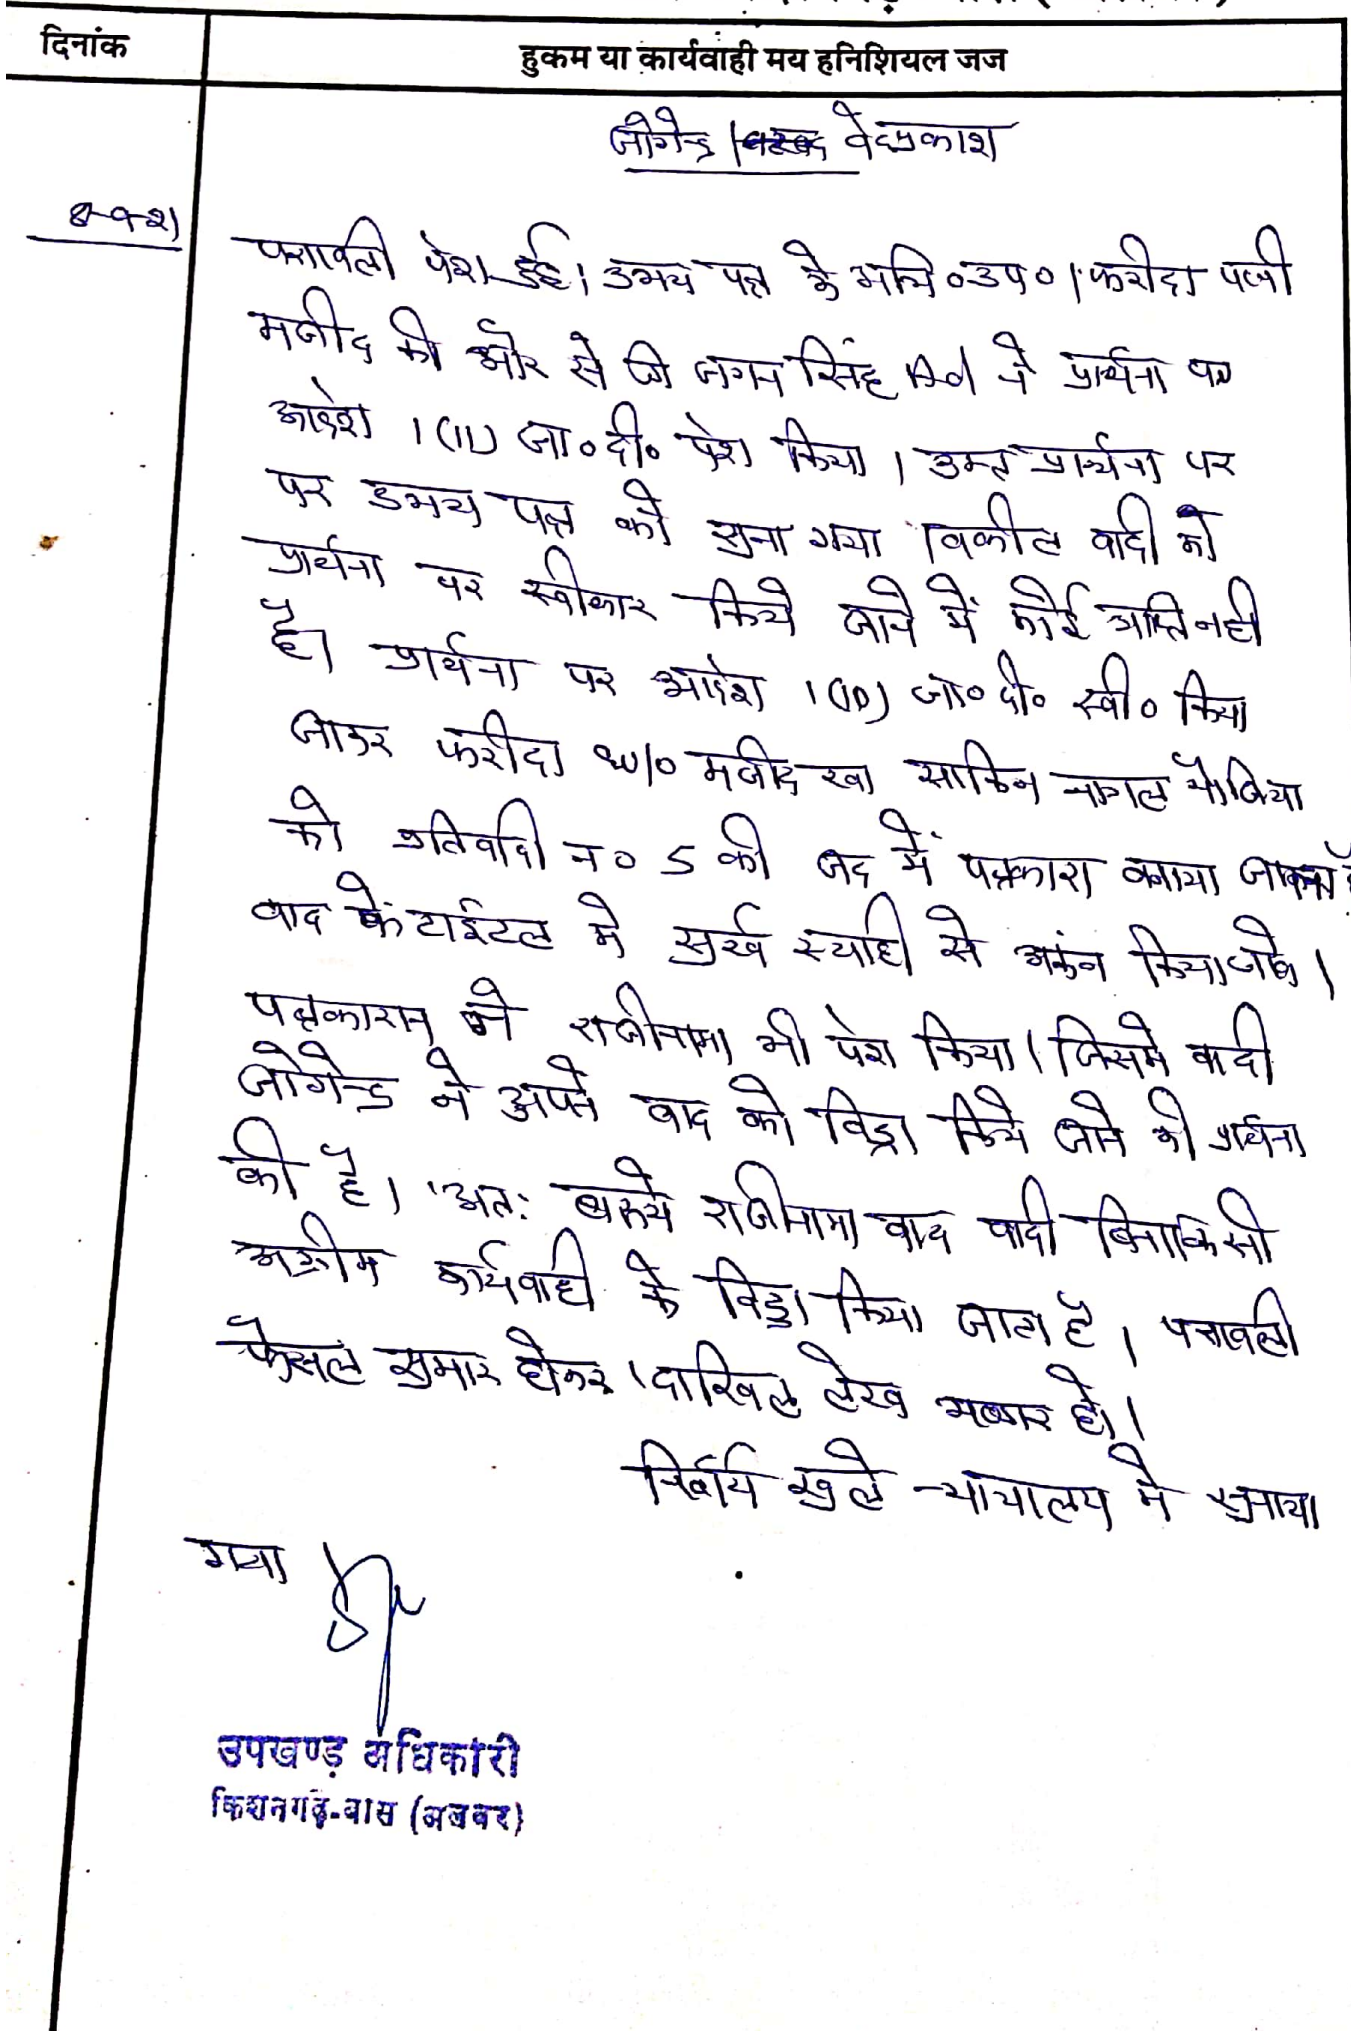 दिनांक
हुकम या कार्यवाही मय हनिशियल जज
जोगेन्द्र / वेदप्रकाश
8-9-21
पत्रावली पेश हुई। उभय पक्ष के अभि०उप०। फरीदा पत्नी
मजीद की ओर से श्री जगन सिंह Ad ने प्रार्थना पत्र
आदेश 1(10) जा०दी० पेश किया। उक्त प्रार्थना पत्र
पर उभय पक्ष को सुना गया। वकील वादी को
प्रार्थना पत्र स्वीकार किये जाने में कोई आपत्ति नही
है। प्रार्थना पत्र आदेश 1(10) जा०दी० स्वी० किया
जाकर फरीदा w/o मजीद खा साकिन नांगल मोजिया
को प्रतिवादी न० 5 की जद में पक्षकारा बनाया जाता है
वाद के टाईटल मे सुर्ख स्याही से अकंन किया जावे।
पक्षकारान ने राजीनामा भी पेश किया। जिसमे वादी
जोगेन्द्र ने अपने वाद को विड्रा किये जाने की प्रार्थना
की है। अत: बरूये राजीनामा वाद वादी बिना किसी
अग्रीम कार्यवाही के विड्रा किया जाता है। पत्रावली
फैसल सुमार होकर दाखिल लेख भण्डार हो।
निर्णय खुले न्यायालय मे सुनाया
गया
उपखण्ड़ अधिकारी
किशनगढ़-बास (अलवर)